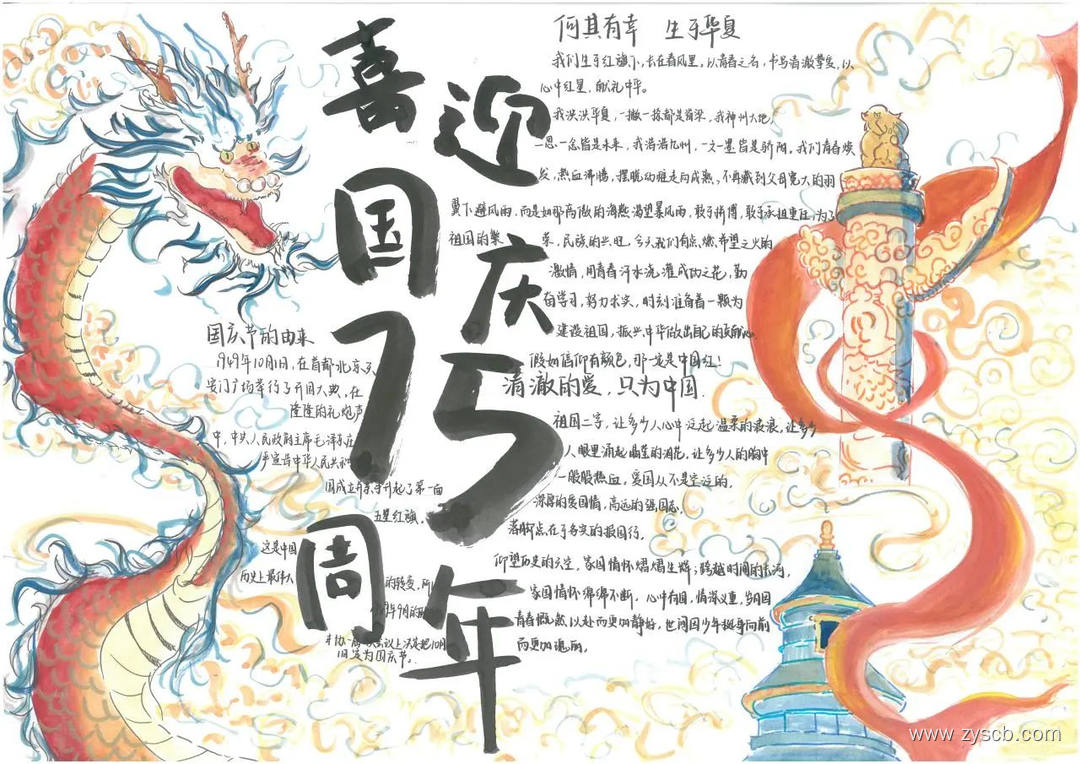 喜迎国庆75周年
何其有幸 生于华夏
我们生于红旗下,长在春风里,以青春之名,书写清澈挚爱,以
心中红星,献礼中华。
我泱泱华夏,一撇一捺都是脊梁,我神州大地,
一思一念皆是未来,我浩浩九州,一文一墨皆是骄阳。我们青春焕
发,热血沸腾,摆脱幼稚走向成熟,不再藏到父母宽大的羽
翼下避风雨,而是如那高傲的海燕渴望暴风雨,敢于拼搏,敢于承担重任,为了
祖国的繁 荣,民族的兴旺,今天我们有点燃希望之火的
激情,用青春汗水浇灌成功之花,勤
奋学习,努力求实,时刻准备着一颗为
建设祖国,振兴中华做出自己的贡献心
假如信仰有颜色,那一定是中国红!
清澈的爱,只为中国.
祖国二字,让多少人心中泛起温柔的衷浪,让多少
人眼里涌起晶莹的泪花,让多少人的胸中
一股股热血,爱国从不是空泛的,
深厚的爱国情,高远的强国志,
落脚点在于务实的报国行。
仰望历史的天空,家国情怀熠熠生辉;跨越时间的长河,
家国情怀绵绵不断。心中有国,情深义重,岁月因
青春慨然以赴而更加静好,世间因少年挺身向前
而更加瑰丽。
国庆节的由来
1949年10月1日,在首都北京天
安门广场举行了开国大典,在
隆隆的礼炮声
中,中央人民政府主席毛泽东庄
严宣告中华人民共和
国成立并亲手升起了第一面
五星红旗。
这是中国
历史上最伟大 的转变,所
年9月的
会议上决定把10月
1日定为国庆节。
www.zyscb.com